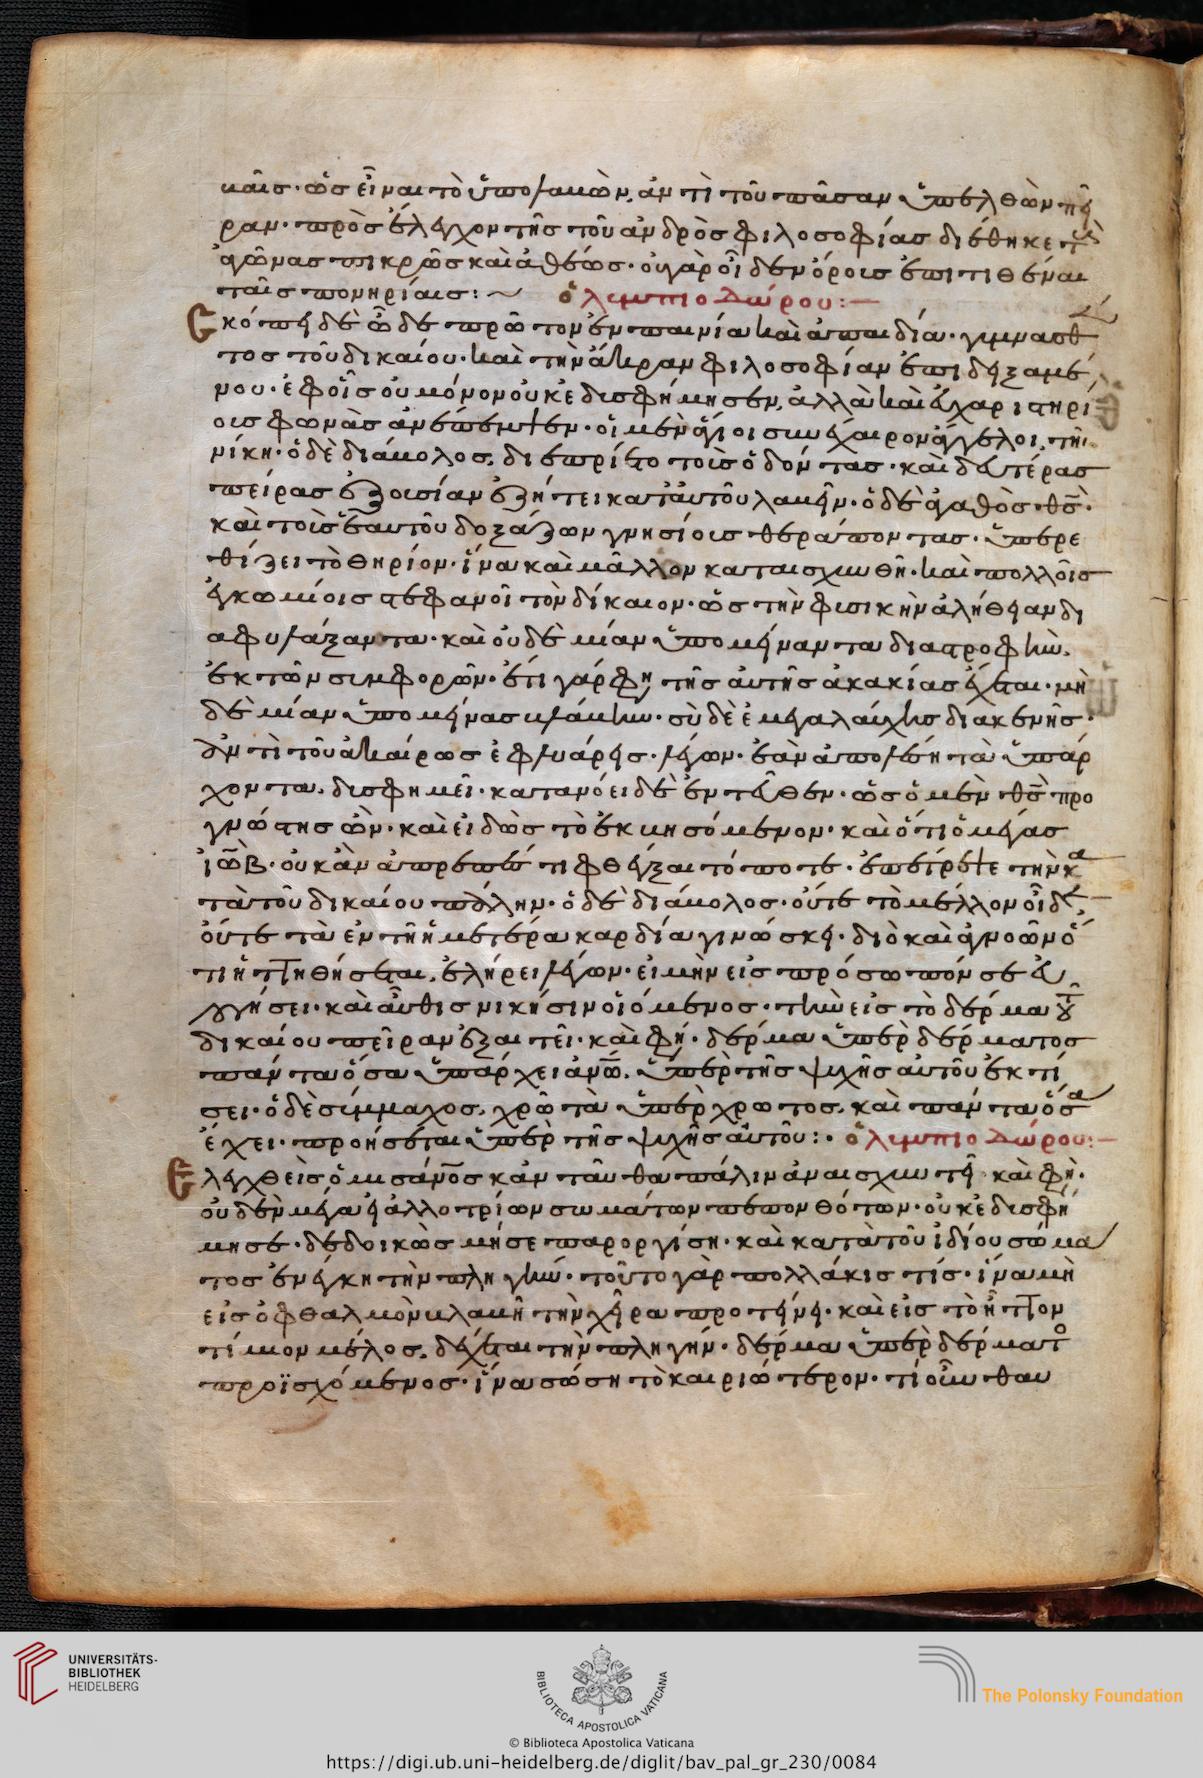 καῖς· ὡς εἶναι τὸ ὑπολαβὼν, ἀντὶ τοῦ πᾶσαν ὑπελθὼν πεῖ
ραν· πρὸς ἔλεγχον τῆς τοῦ ἀνδρὸς φιλοσοφίας διέθηκε τοὺς
ἀγῶνας πικρῶς καὶ ἀθέως· οὐ γὰρ οἶδεν ὅροις ἐπιτιθέναι
ταῖς πονηρίαις:~ ὀλιμπιοδώρου:—
Σκόπει δὲ ὧδε πρῶτον
τος τοῦ δικαίου· καὶ τὴν ἄκραν φιλοσοφίαν ἐπιδειξαμέ
νου· ἐφ οἷς οὐ μόνον οὐκ ἐδισφήμησεν, ἀλλὰ καὶ εὐχαριστηρί
οις φωνὰς ἀνέπεμπεν· οἱ μὲν ἅγιοι συνέχαιρον ἄγγελοι, τῆι
νίκη· ὁ δὲ διάβολος, διεπρίετο τοὺς ὀδόντας· καὶ δευτέρας
πείρας ἐξουσίαν ἐζήτει κατ αὐτοῦ λαβεῖν· ὁ δὲ ἀγαθὸς θς̅·
καὶ τοὺς ἑαυτοῦ δοξάζων γνησίοις θεράποντας· ὑπερε
θίζει τὸ θηρίον· ἵνα καὶ μᾶλλον καταισχυνθῆ· καὶ πολλοῖς
ἐγκωμίοις στεφανοῖ τὸν δίκαιον· ὡς τὴν φισικὴν ἀλήθειαν δι
αφυλάξαντα· καὶ οὐδὲ μίαν ὑπομείναντα διαστροφὴν.
ἐκ τῶν συμφορῶν· ἔτι γάρ φη, τῆς αὐτῆς ἀκακίας ἔχεται· μη
δὲ μίαν ὑπομείνας βλάβην· σὺ δὲ ἐμεγαλαύχεις διακενῆς·
ἀντὶ τοῦ ἀκαίρως ἐφλυάρεις· λέγων· ἐὰν ἀπολέση τὰ ὑπάρ
χοντα, δισφημεῖ· κατανόει δὲ ἐντεῦθεν· ὡς ὁ μὲν θς̅ προ
γνώστης ὢν· καὶ εἰδὼς τὸ ἐκβησόμενον· καὶ ὅτι ὁ μέγας
ἰὼβ· οὐκ ἂν ἀπρεπές τι φθέγξαιτό ποτε· ἐπέτρεπε τὴν κα
τὰ τοῦ δικαίου πάλην· ὁ δὲ διάβολος· οὔτε τὸ μέλλον οἶδε
οὔτε τὰ ἐν τῆ ἡμετέρα καρδία γινώσκει· διὸ καὶ ἀγνοῶν ὅ
τι ἡττηθήσεται, ἐλήρει λέγων· εἰ μὴν εἰς πρόσωπόν σε εὐ
λογήσει· καὶ αὖθις νικήσιν οἰόμενος· τὴν εἰς τὸ δέρμα τοῦ
δικαίου πεῖραν ἐξαιτεῖ· καὶ φη· δέρμα ὑπὲρ δέρματος
πάντα ὅσα ὑπάρχει ἀνω̅. ὑπὲρ τῆς ψιχῆς αὐτοῦ ἐκτί
σει· ὁ δὲ σίμμαχος, χρῶτα ὑπὲρ χρωτος, καὶ πάντα ὅσα
ἔχει· προήσεται ὑπὲρ τῆς ψιχῆς αὐτοῦ:· ὀλιμπιοδώρου:—
Ἐλεγχθεὶς ὁ μισάνος̅ κἀνταῦθα πάλιν ἀναισχυντεῖ καὶ φη·
οὐδὲν μέγα εἰ ἀλλοτρίων σωμάτων πεπονθότων· οὐκ ἐδισφή
μησε· δεδοικὼς μή σε παροργίση· καὶ κατὰ τοῦ ἰδίου σώμα
τος ἐνέγκη τὴν πληγὴν· τοῦτο γὰρ πολλάκις τίς· ἵνα μὴ
εἰς ὀφθαλμὸν βλαβῆ τὴν χεῖρα προτείνει· καὶ εἰς τὸ ἧττον
τίμιον μέλος, δέχεται τὴν πληγήν· δέρμα ὑπὲρ δέρματο
προϊσχόμενος· ἵνα σώση τὸ καιριώτερον· τί οὖν θαυ
UNIVERSITÄTS-
BIBLIOTHEK
HEIDELBERG
BIBLIOTECA APOSTOLICA VATICANA
The Polonsky Foundation
© Biblioteca Apostolica Vaticana
https://digi.ub.uni-heidelberg.de/diglit/bav_pal_gr_230/0084